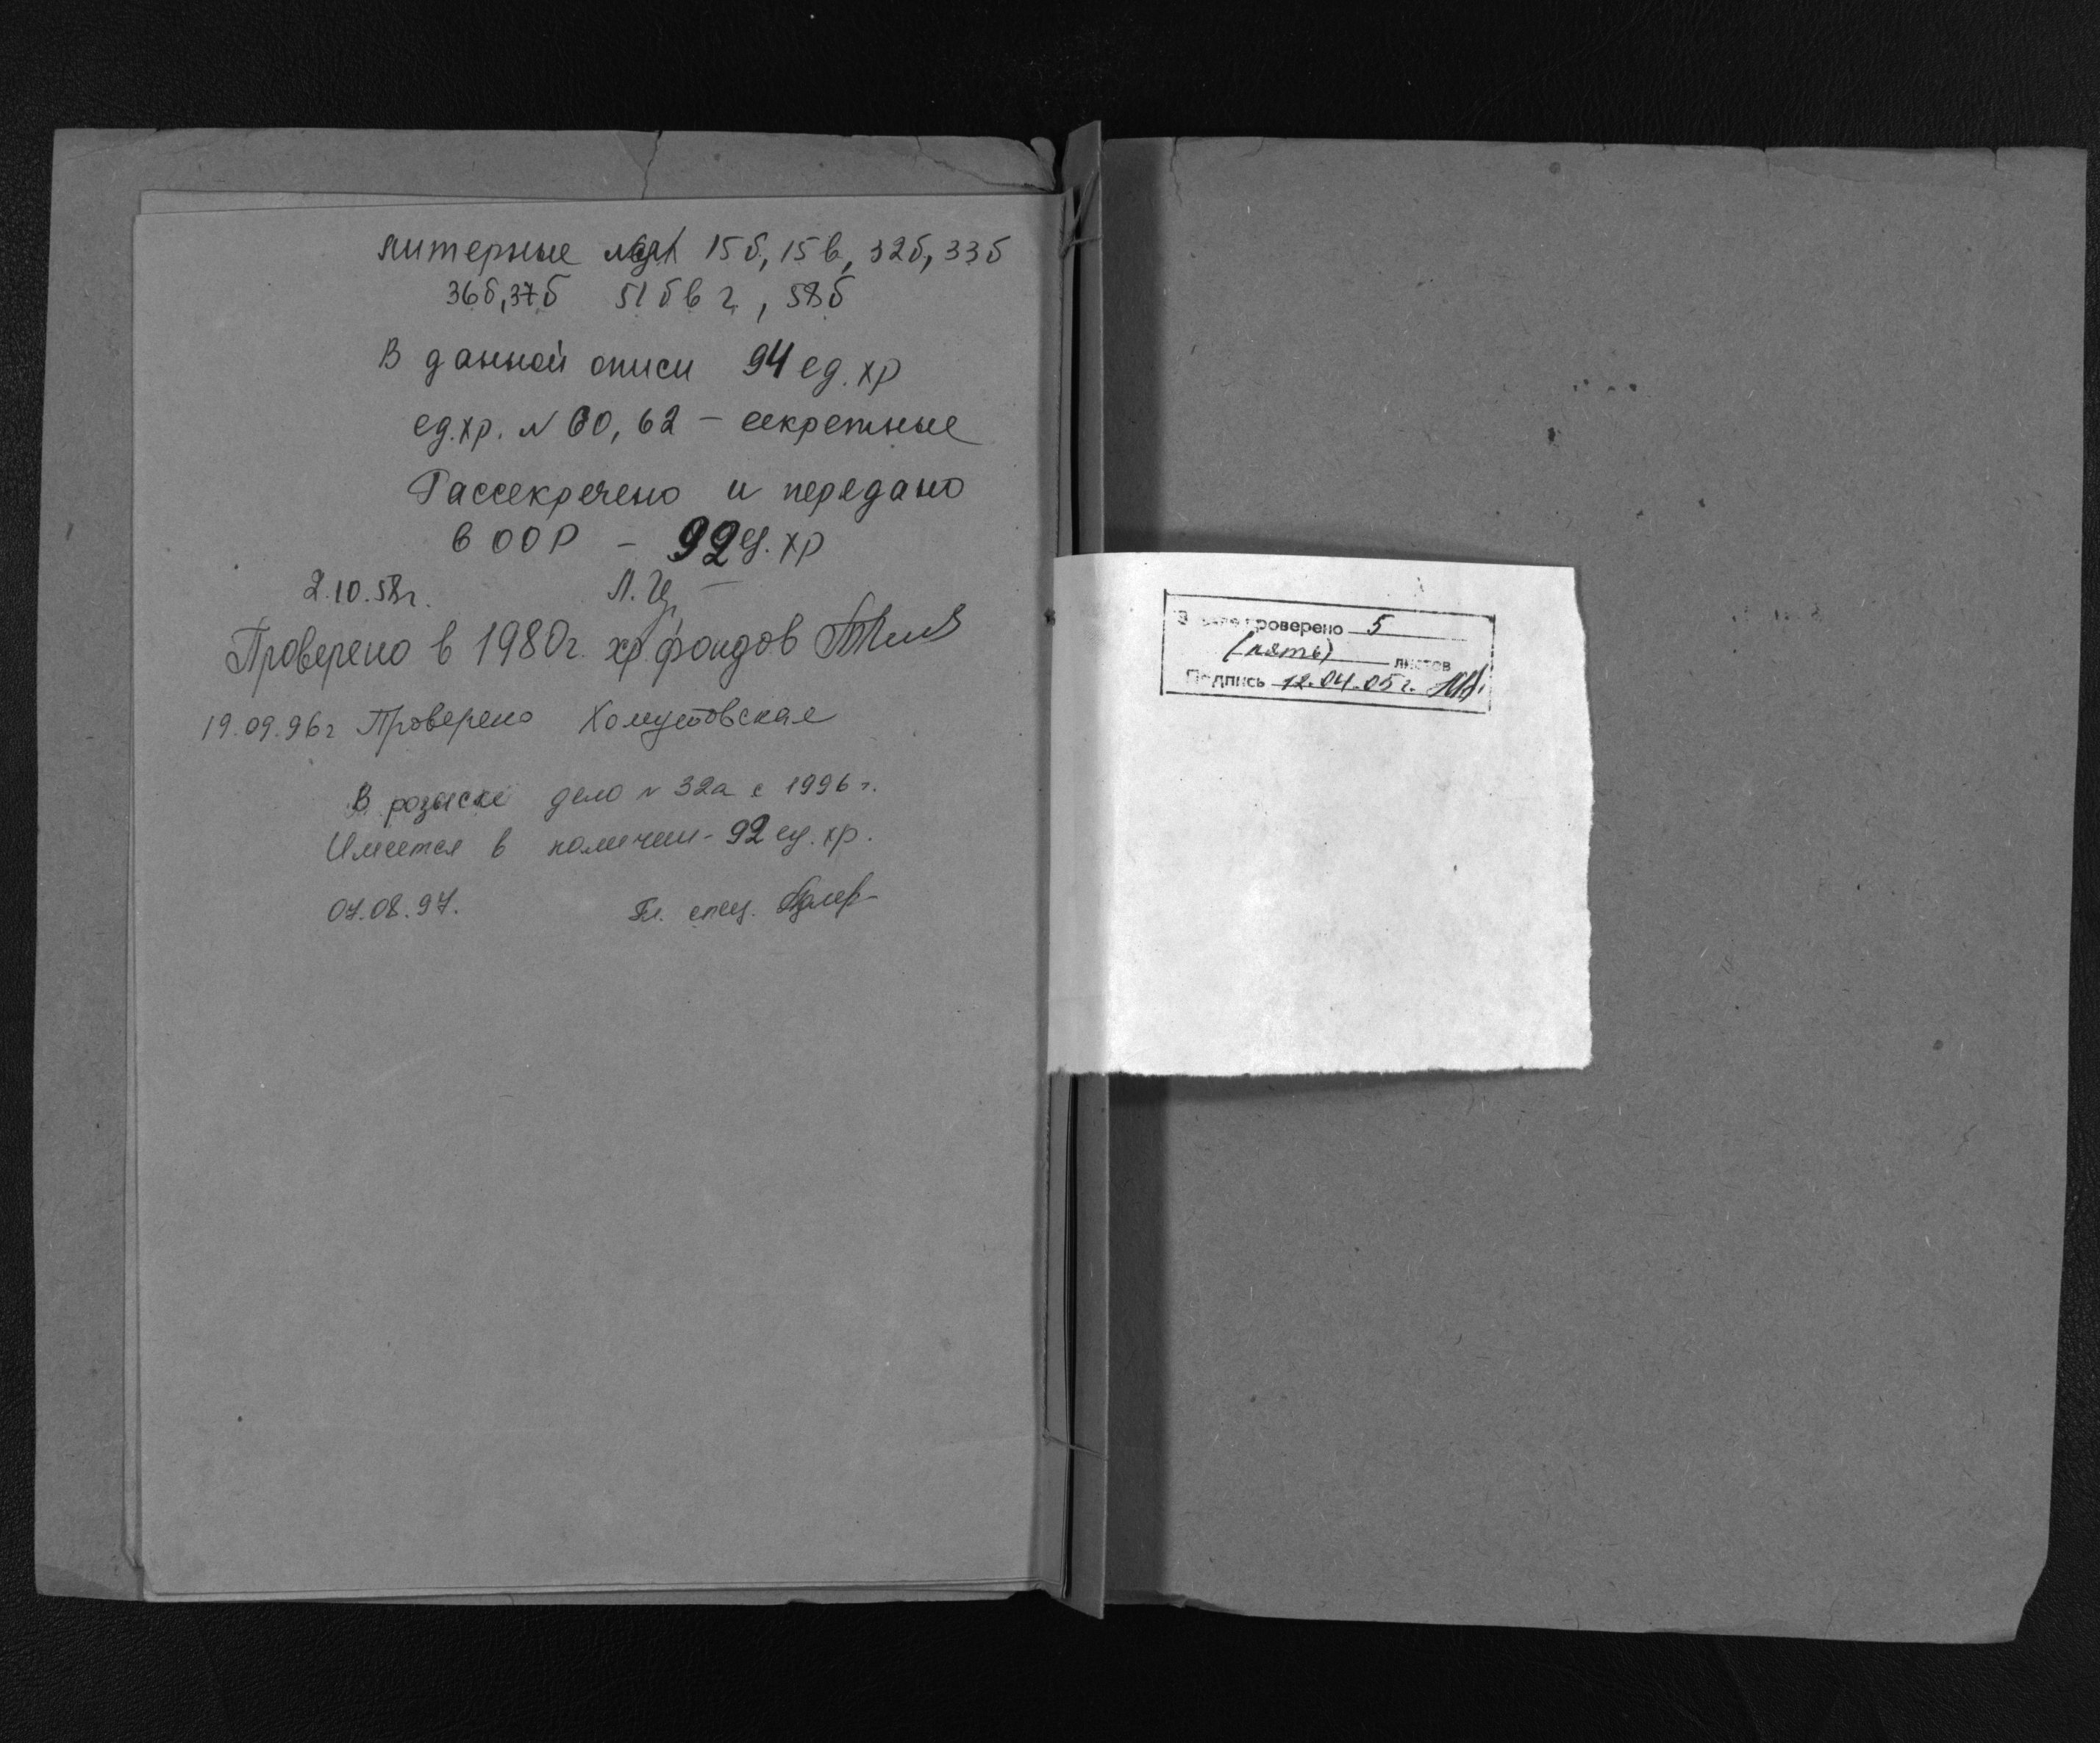 литерные №№ 15б, 15в, 32б, 33б
36б, 37б 51б в г, 58б
В данной описи 94 ед. хр
ед. хр. № 60, 62 – секретные
Рассекречено и передано
в ООР – 92 ед. хр
2.10.58г.
Проверено в 1980г. хр. фондов
19.09.96г Проверено Хомутовская
В розыске дело № 32а с 1996 г.
Имеется в наличии - 92 ед. хр.
07.08.97. Гл. спец.
В деле проверено 5
(пять) листов
Подпись 12.04.05г.